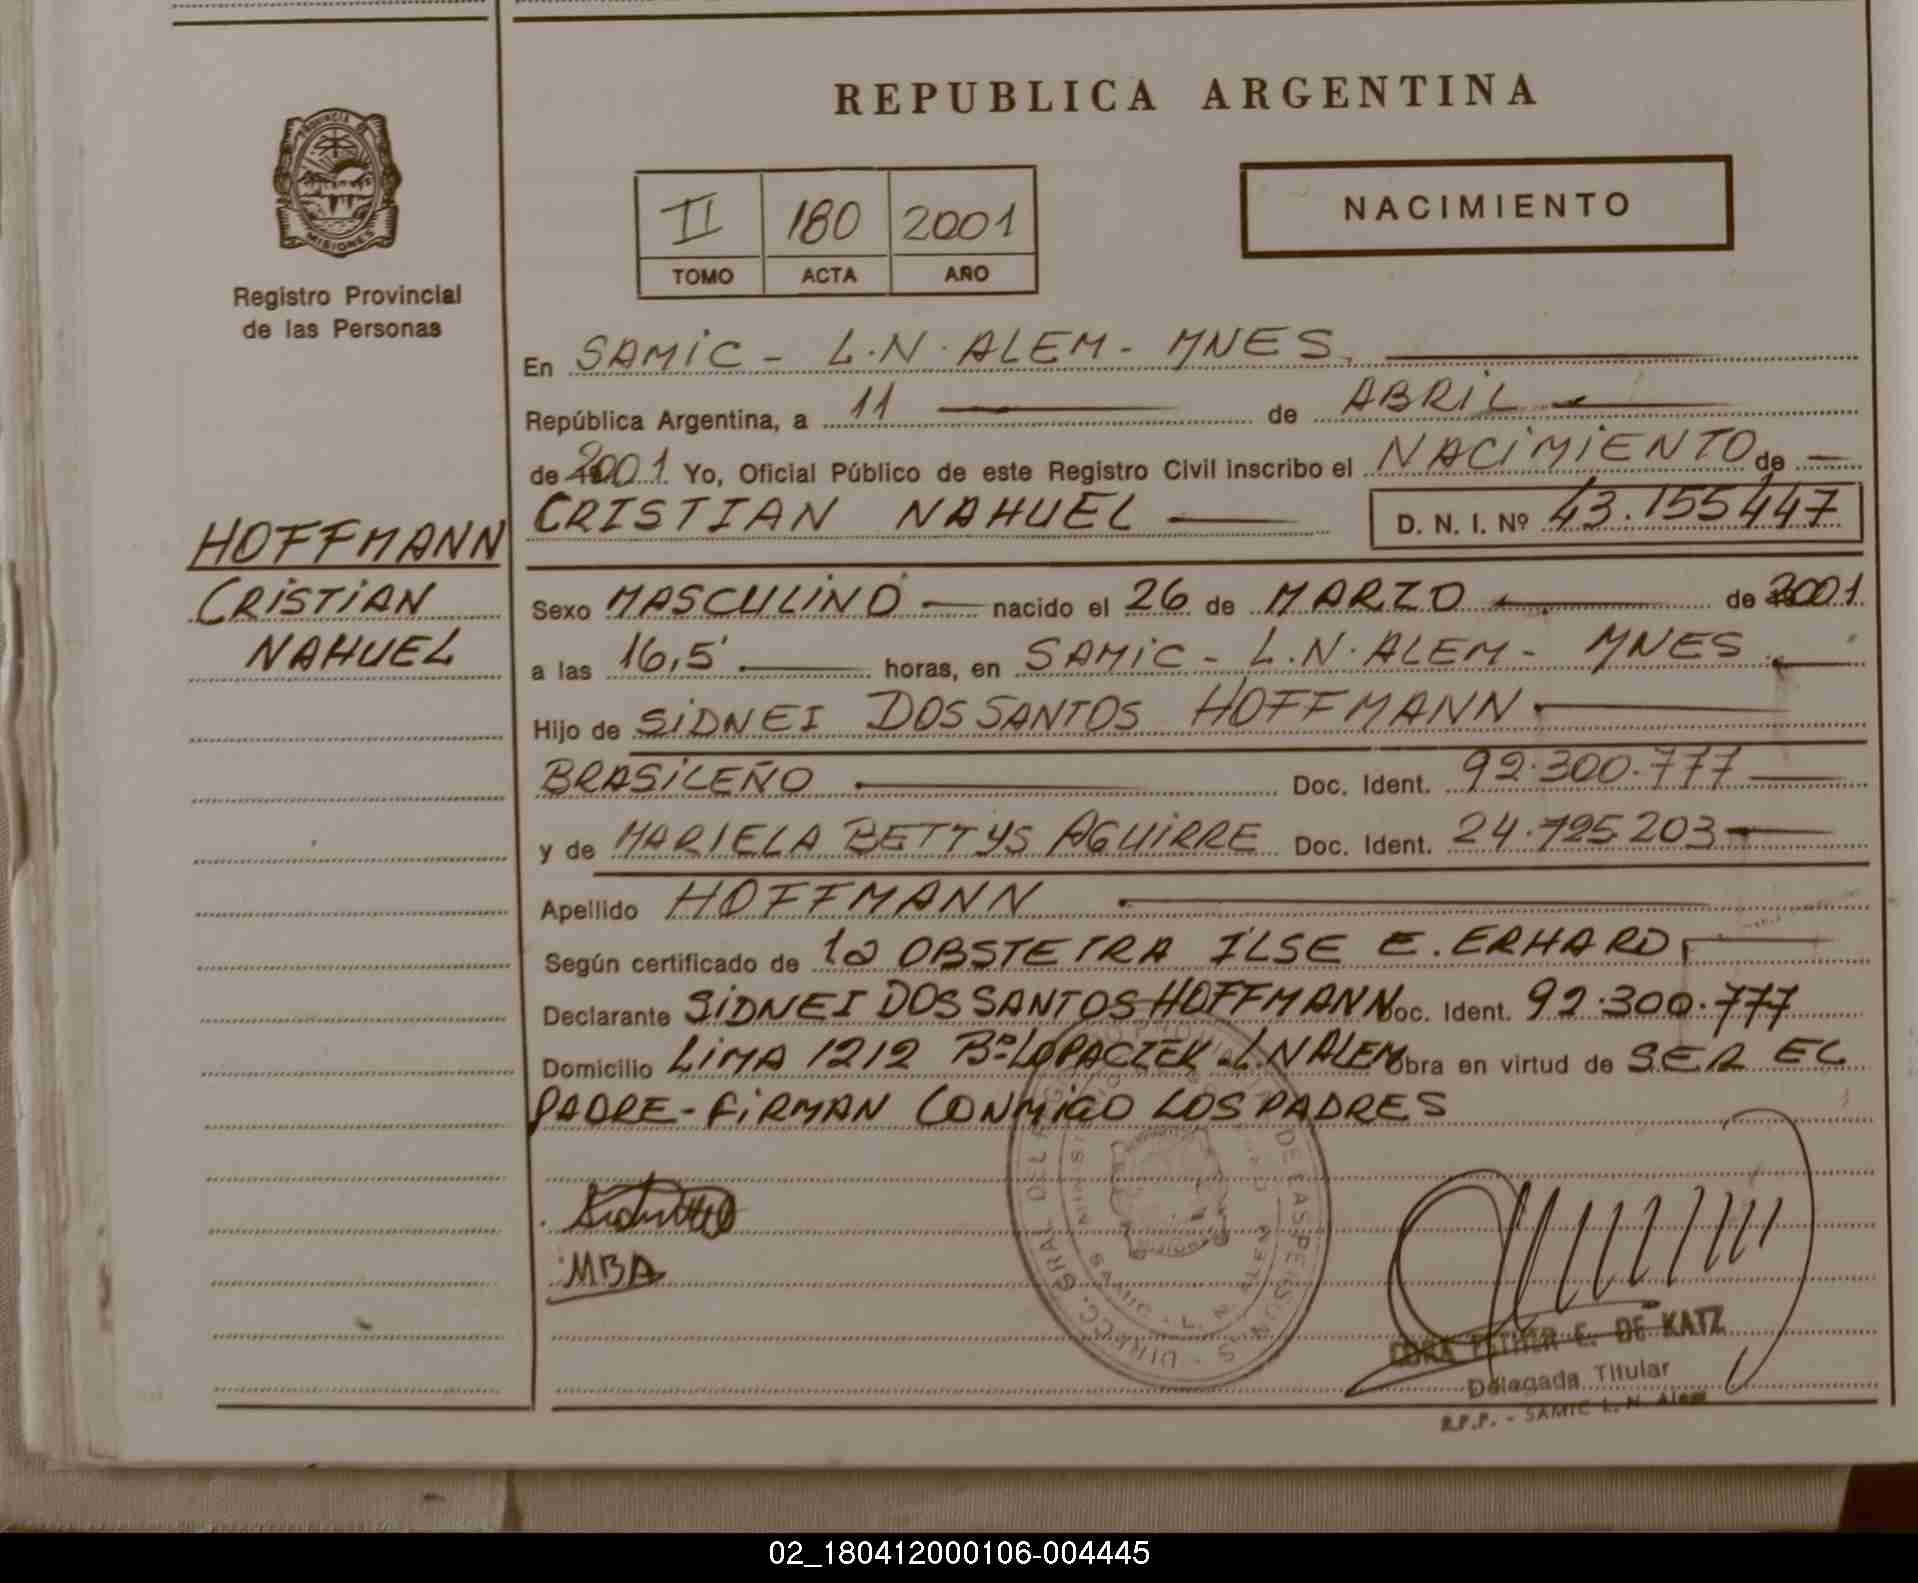 REPUBLICA ARGENTINA
PROVINCIA DE
MISIONES
Registro Provincial
de las Personas
II 180 2001
TOMO ACTA AÑO
NACIMIENTO
En SAMIC - L.N. ALEM - MNES.
República Argentina, a 11 de ABRIL
de 2001. Yo, Oficial Público de este Registro Civil inscribo el NACIMIENTO de
CRISTIAN NAHUEL D. N. I. Nº 43.155447
HOFFMANN
CRISTIAN
NAHUEL
Sexo MASCULINO nacido el 26 de MARZO de 2001
a las 16,5' horas, en SAMIC - L.N. ALEM - MNES
Hijo de SIDNEI DOS SANTOS HOFFMANN
BRASILEÑO Doc. Ident. 92.300.777
y de MARIELA BETTYS AGUIRRE Doc. Ident. 24.725203
Apellido HOFFMANN
Según certificado de la OBSTETRA ILSE E. ERHARD
Declarante SIDNEI DOS SANTOS HOFFMANN Doc. Ident. 92.300.777
Domicilio LIMA 1212 Bº LOPACZEK - L.N ALEM Obra en virtud de SER EL
PADRE - FIRMAN CONMIGO LOS PADRES
MBA
DIRECC. GRAL DEL DE LAS PERSONAS
SAMIC - L. N. ALEM
CORA ESTHER E. DE KATZ
Delegada Titular
R.P.P. - SAMIC L. N. Alem
02_180412000106-004445